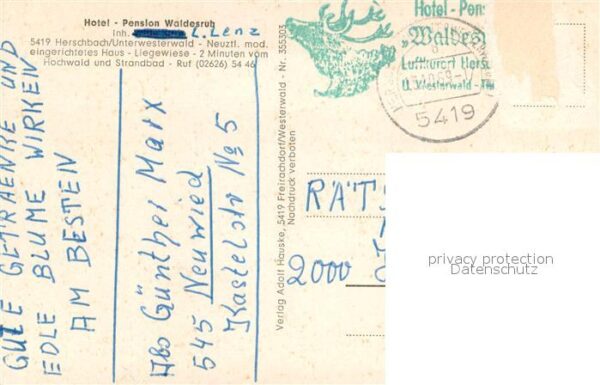 Hotel - Pension Waldesruh
Inh. L. Lenz
5419 Herschbach/Unterwesterwald - Neuztl. mod.
eingerichtetes Haus - Liegewiese - 2 Minuten vom
Hochwald und Strandbad - Ruf (02626) 54 46
GUTE GETRAENKE UND
EDLE BLUME WIRKEN
AM BESTEN
Abs Günther Marx
545 Neuwied
Kastelstr No 5
Verlag Adolf Hauske, 5419 Freirachdorf/Westerwald - Nr. 355303
Nachdruck verboten
Hotel-Pen
„Waldes
Luftkurort Hers
U. Westerwald
5419
RÄTS
2000
privacy protection
Datenschutz